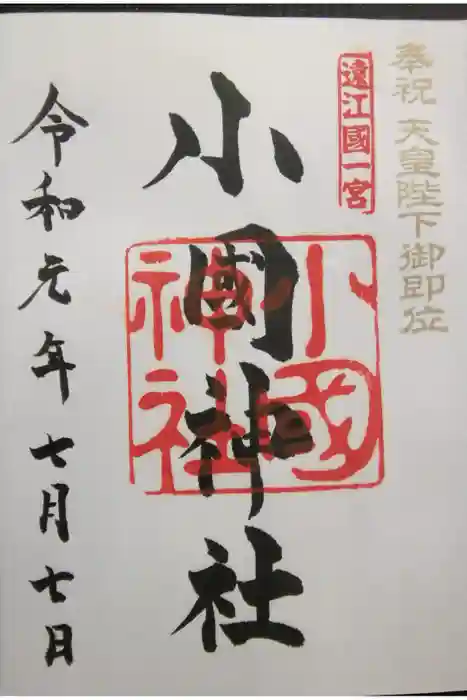 奉祝 天皇陛下御即位
遠江國一宮
小國神社
小國神社
令和元年七月七日